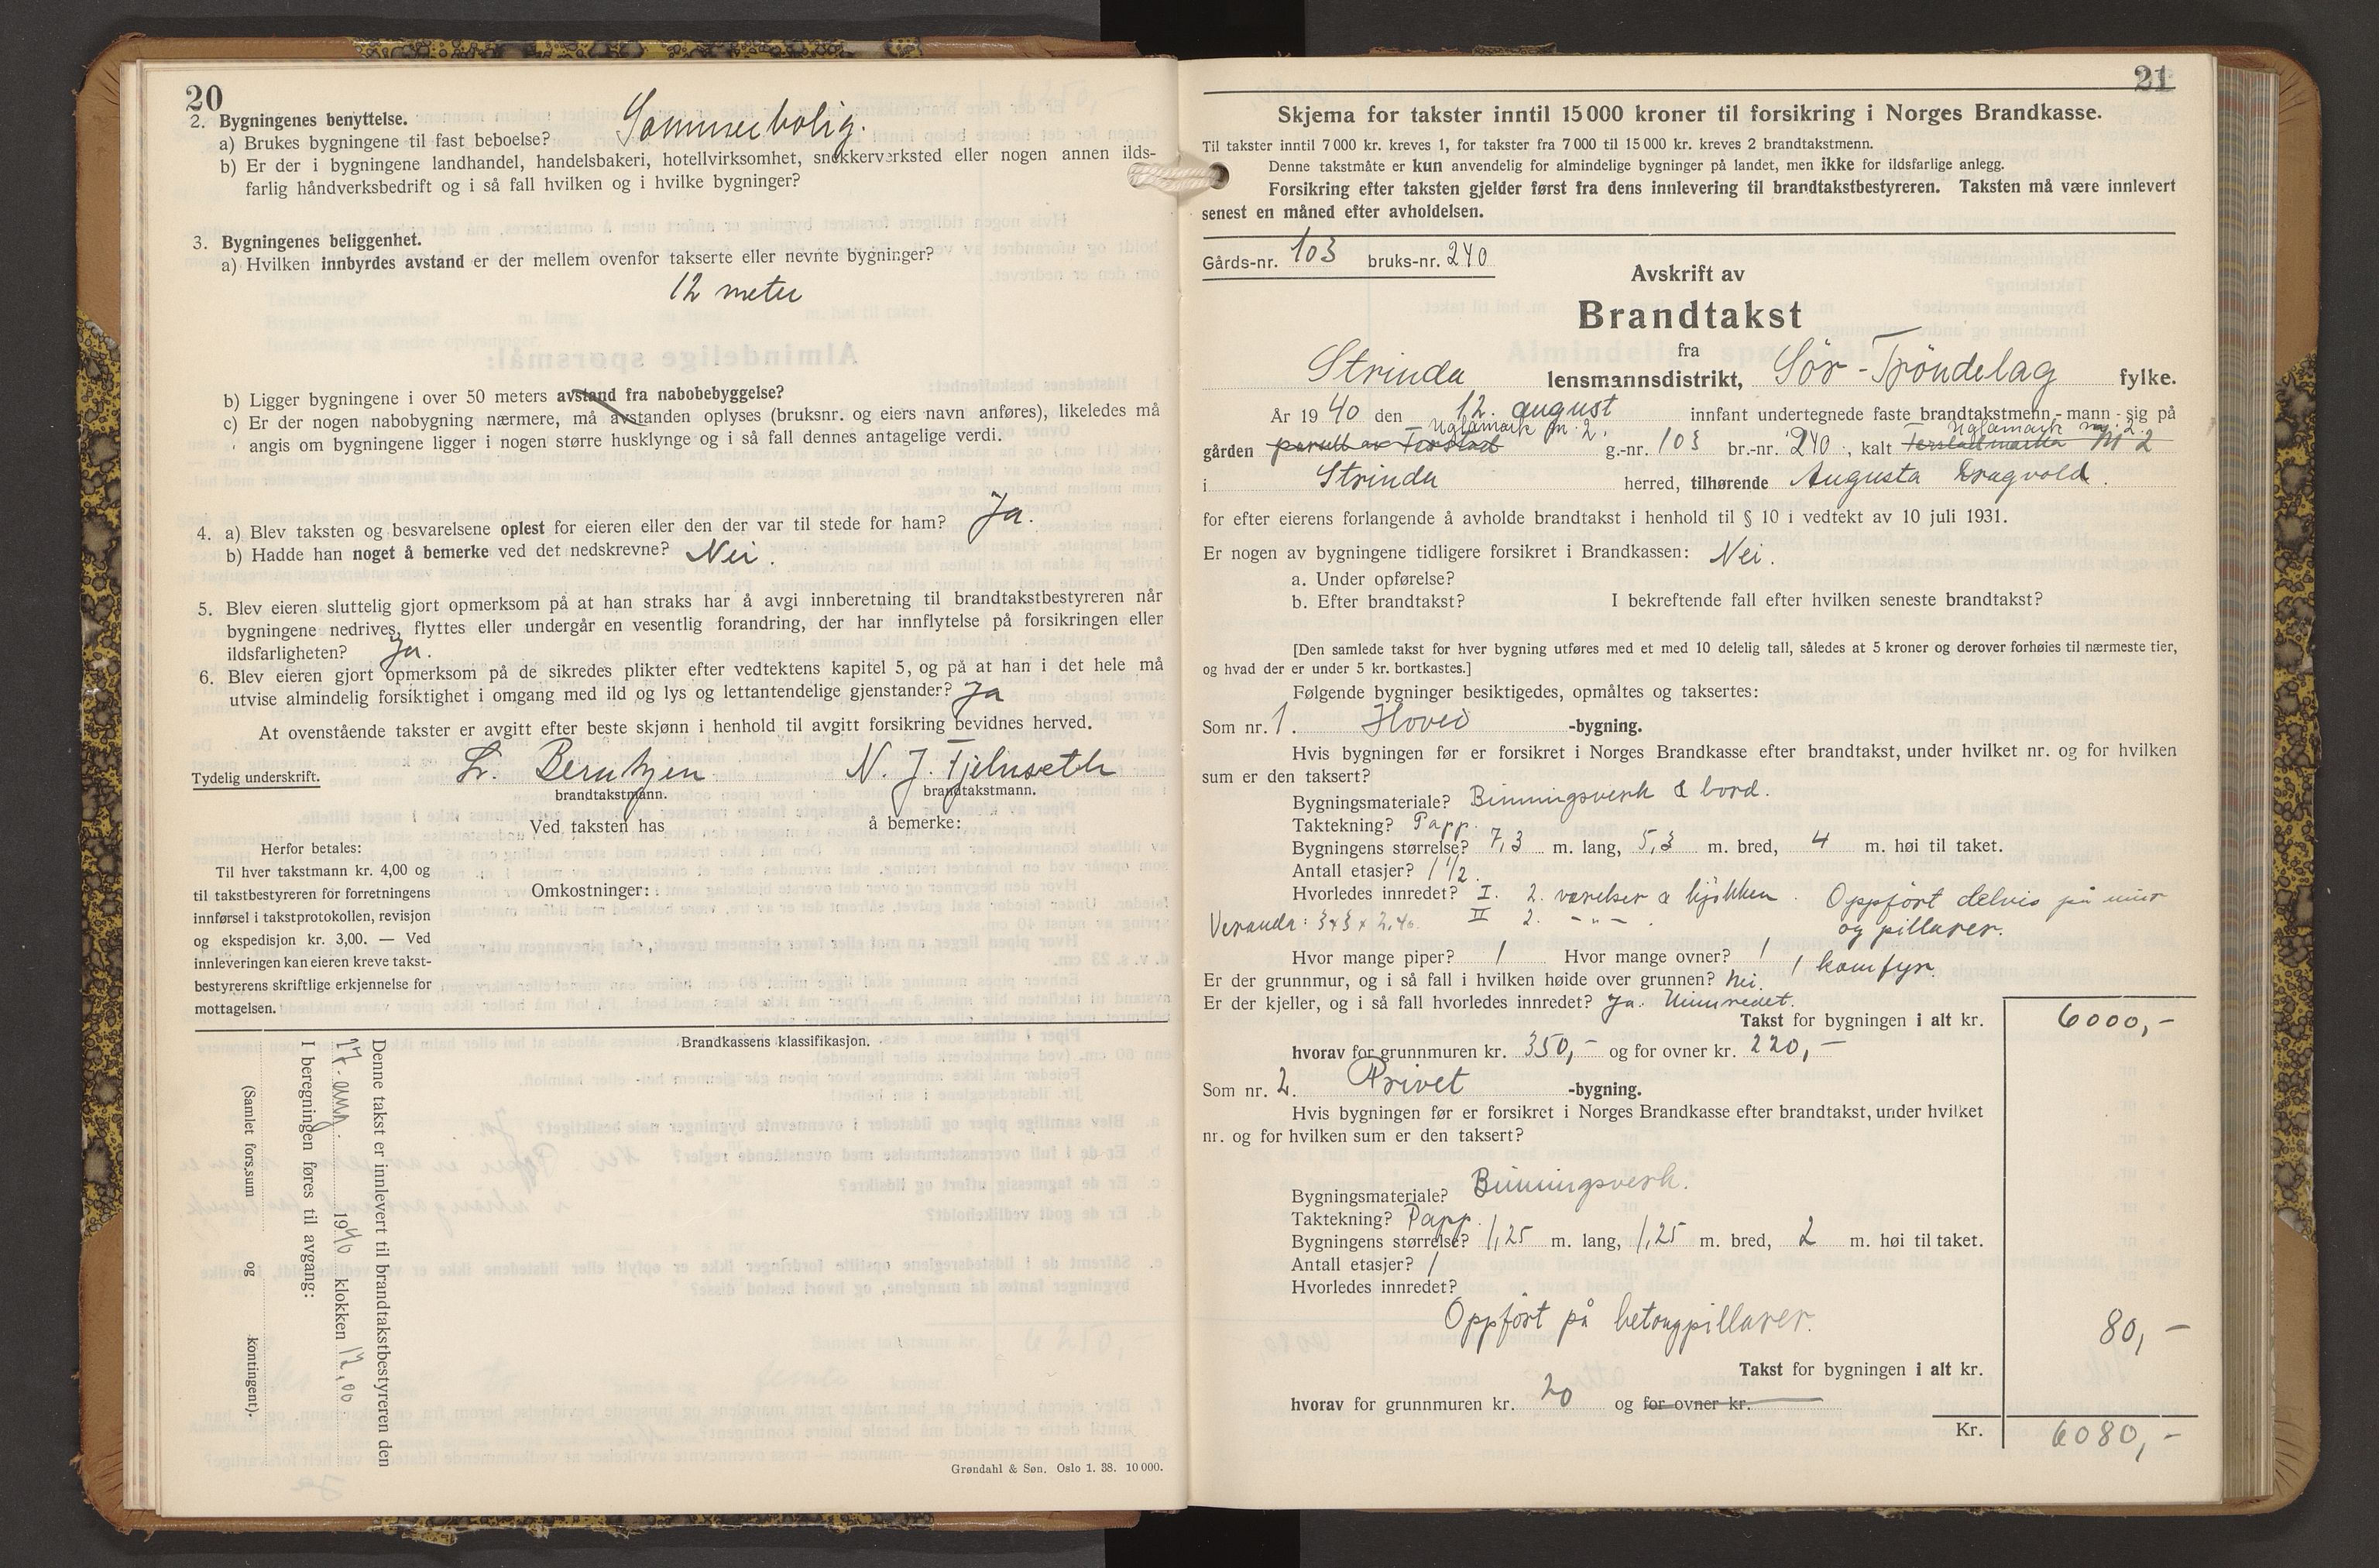 20
2. Bygningenes benyttelse.
a) Brukes bygningene til fast beboelse? Sommerbolig.
b) Er der i bygningene landhandel, handelsbakeri, hotellvirksomhet, snekkerverksted eller nogen annen ilds-
farlig håndverksbedrift og i så fall hvilken og i hvilke bygninger?
3. Bygningenes beliggenhet.
a) Hvilken innbyrdes avstand er der mellem ovenfor takserte eller nevnte bygninger?
12 meter
b) Ligger bygningene i over 50 meters avstand fra nabobebyggelse?
c) Er der nogen nabobygning nærmere, må avstanden oplyses (bruksnr. og eiers navn anføres), likeledes må
angis om bygningene ligger i nogen større husklynge og i så fall dennes antagelige verdi.
4. a) Blev taksten og besvarelsene oplest for eieren eller den der var til stede for ham? Ja.
b) Hadde han noget å bemerke ved det nedskrevne? Nei.
5. Blev eieren sluttelig gjort opmerksom på at han straks har å avgi innberetning til brandtakstbestyreren når
bygningene nedrives, flyttes eller undergår en vesentlig forandring, der har innflytelse på forsikringen eller
ildsfarligheten? Ja.
6. Blev eieren gjort opmerksom på de sikredes plikter efter vedtektens kapitel 5, og på at han i det hele må
utvise almindelig forsiktighet i omgang med ild og lys og lettantendelige gjenstander? Ja
At ovenstående takster er avgitt efter beste skjønn i henhold til avgitt forsikring bevidnes herved.
Tydelig underskrift. L. Berntzen N. J. Fjelnseth
brandtakstmann. brandtakstmann.
Ved taksten has å bemerke:
Herfor betales:
Til hver takstmann kr. 4,00 og
til takstbestyreren for forretningens
innførsel i takstprotokollen, revisjon
og ekspedisjon kr. 3,00. — Ved
innleveringen kan eieren kreve takst-
bestyrerens skriftlige erkjennelse for
mottagelsen.
Omkostninger:
Brandkassens klassifikasjon.
Denne takst er innlevert til brandtakstbestyreren den
17. aug. 1940 klokken 12,00
I beregningen føres til avgang:
(Samlet fors.sum og kontingent).
Grøndahl & Søn. Oslo 1. 38. 10 000.
21
Skjema for takster inntil 15 000 kroner til forsikring i Norges Brandkasse.
Til takster inntil 7 000 kr. kreves 1, for takster fra 7 000 til 15 000 kr. kreves 2 brandtakstmenn.
Denne takstmåte er kun anvendelig for almindelige bygninger på landet, men ikke for ildsfarlige anlegg.
Forsikring efter taksten gjelder først fra dens innlevering til brandtakstbestyreren. Taksten må være innlevert
senest en måned efter avholdelsen.
Gårds-nr. 103 bruks-nr. 240
Avskrift av
Brandtakst
fra
Strinda lensmannsdistrikt, Sör-Tröndelag fylke.
År 1940 den 12. august innfant undertegnede faste brandtakstmenn - mann - sig på
Uglamark nr. 2. Uglamark nr. 2.
gården parsell av Terstad g.-nr. 103 br.-nr. 240, kalt Terstadmarka nr 2
i Strinda herred, tilhørende Augusta Dragvold.
for efter eierens forlangende å avholde brandtakst i henhold til § 10 i vedtekt av 10 juli 1931.
Er nogen av bygningene tidligere forsikret i Brandkassen: Nei.
a. Under opførelse?
b. Efter brandtakst? I bekreftende fall efter hvilken seneste brandtakst?
[Den samlede takst for hver bygning utføres med et med 10 delelig tall, således at 5 kroner og derover forhøies til nærmeste tier,
og hvad der er under 5 kr. bortkastes.]
Følgende bygninger besiktigedes, opmåltes og taksertes:
Som nr. 1. Hoved -bygning.
Hvis bygningen før er forsikret i Norges Brandkasse efter brandtakst, under hvilket nr. og for hvilken
sum er den taksert?
Bygningsmateriale? Binningsverk & bord.
Taktekning? Papp.
Bygningens størrelse? 7,3 m. lang, 5,3 m. bred, 4 m. høi til taket.
Antall etasjer? 1 1/2.
Hvorledes innredet? I. 2. værelser & kjökken. Oppfört delvis på mur
Veranda: 3x3 x 2,40. II 2. - " - . og pillarer.
Hvor mange piper? 1 Hvor mange ovner? 1 1 komfyr.
Er der grunnmur, og i så fall i hvilken høide over grunnen? Nei.
Er der kjeller, og i så fall hvorledes innredet? Ja. Uinnredet.
Takst for bygningen i alt kr. 6000,-
hvorav for grunnmuren kr. 350,- og for ovner kr. 220,-
Som nr. 2. Privet -bygning.
Hvis bygningen før er forsikret i Norges Brandkasse efter brandtakst, under hvilket
nr. og for hvilken sum er den taksert?
Bygningsmateriale? Binningsverk.
Taktekning? Papp.
Bygningens størrelse? 1,25 m. lang, 1,25 m. bred, 2 m. høi til taket.
Antall etasjer? 1
Hvorledes innredet?
Oppfört på betongpillarer.
80,-
Takst for bygningen i alt kr.
hvorav for grunnmuren kr. 20 og for ovner kr.
Kr. 6080,-